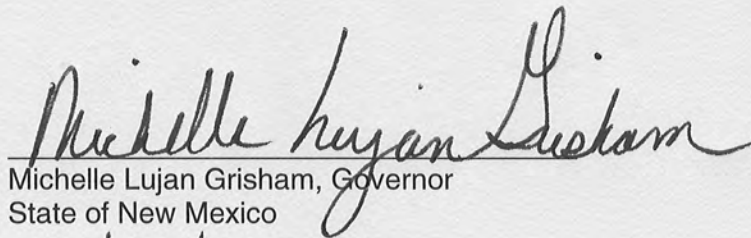 Michelle Lujan Grisham
Michelle Lujan Grisham, Governor
State of New Mexico